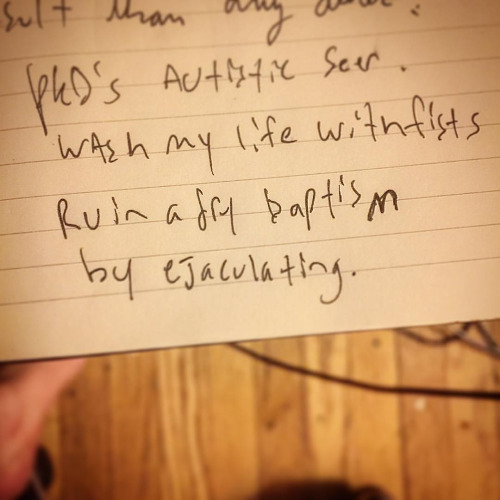 sult than any
PKD's Autistic Seer.
Wash my life with fists
Ruin a dry baptism
by ejaculating.